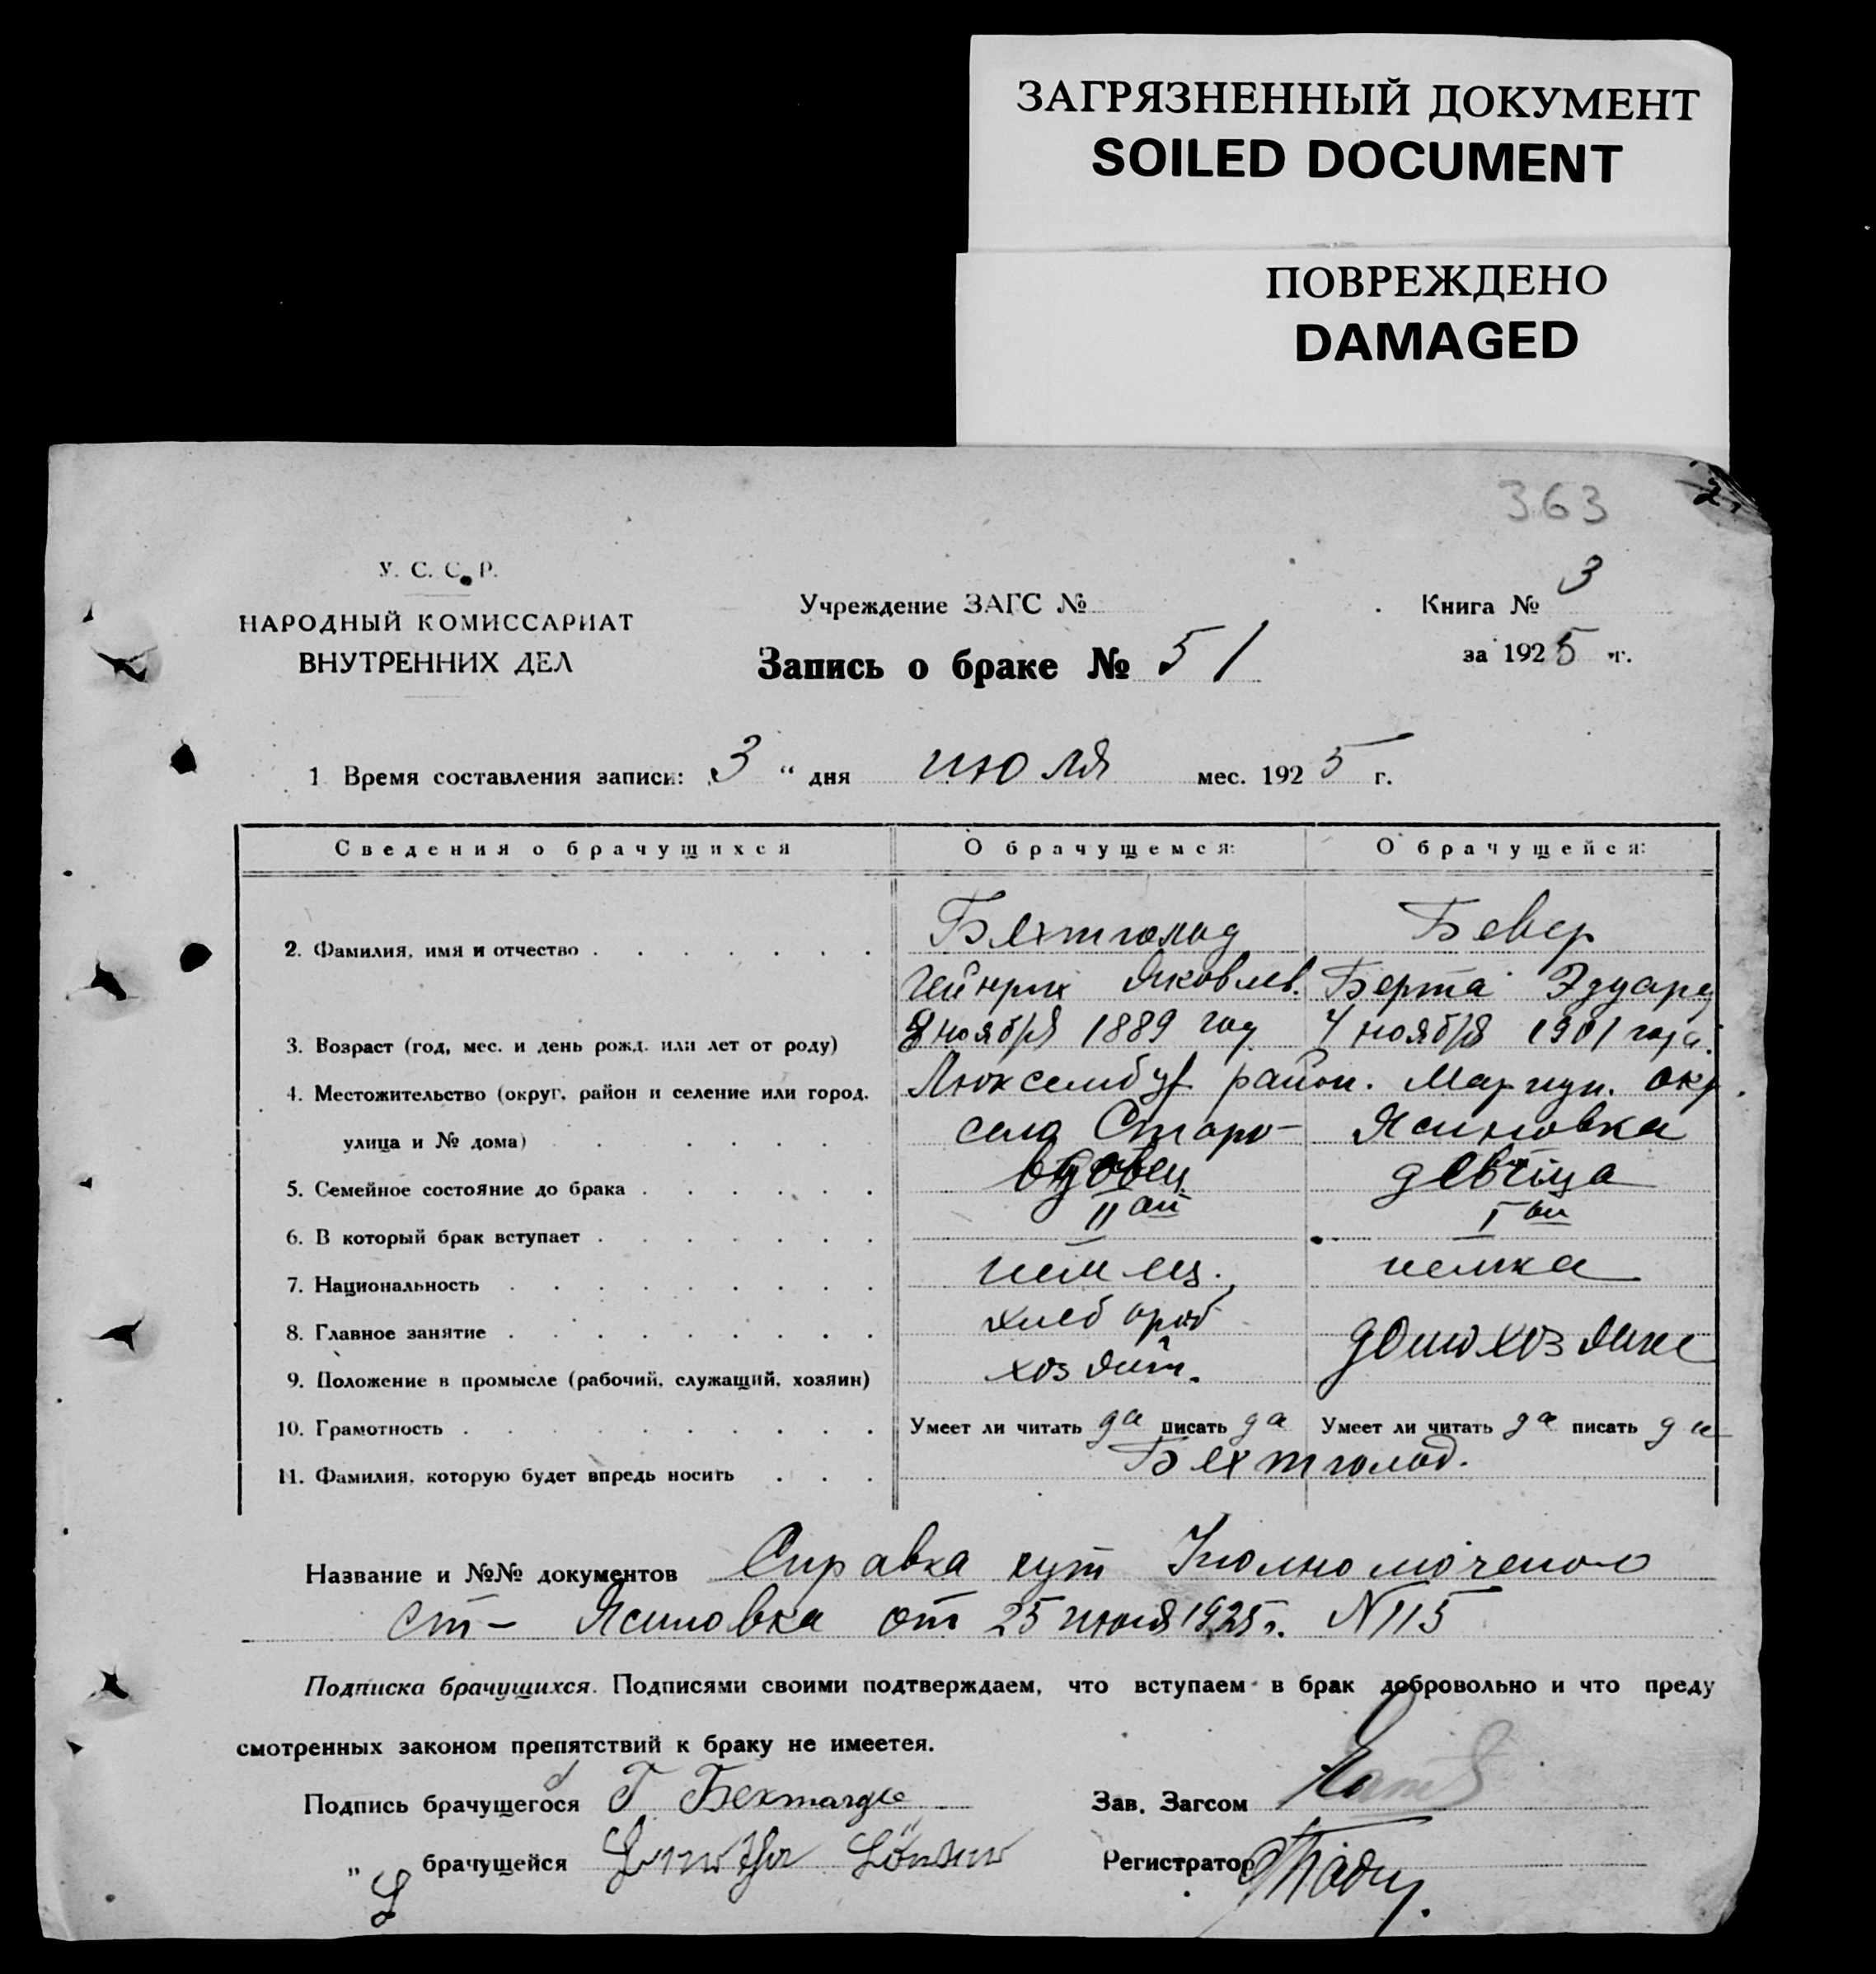 ЗАГРЯЗНЕННЫЙ ДОКУМЕНТ
SOILED DOCUMENT
ПОВРЕЖДЕНО
DAMAGED
363
У. С. С. Р.
НАРОДНЫЙ КОМИССАРИАТ
ВНУТРЕННИХ ДЕЛ
Учреждение ЗАГС №
Книга № 3
за 1925 г.
Запись о браке № 51
1 Время составления записи: 3 " дня июля мес. 1925 г.
Сведения о брачущихся О брачущемся: О брачущейся:
2. Фамилия, имя и отчество Бехтгольд Бевер
Гейнрих Яковлев. Берта Эдуард
3. Возраст (год, мес. и день рожд. или лет от роду) 8 ноября 1889 год 4 ноября 1901 года.
4. Местожительство (округ, район и селение или город, Люксембур район. Мариуп. окр.
улица и № дома) села Старо- Ясиновка
5. Семейное состояние до брака вдовец девица
6. В который брак вступает II ой I ый
7. Национальность немец. немка
8. Главное занятие хлебороб домохозяйке
9. Положение в промысле (рабочий, служащий, хозяин) хозяин.
10. Грамотность Умеет ли читать да писать да Умеет ли читать да писать да
11. Фамилия, которую будет впредь носить Бехтголод.
Название и №№ документов Справка
ст- Ясиновка от 25 июня 1925 г. N 115
Подписка брачущихся. Подписями своими подтверждаем, что вступаем в брак добровольно и что преду
смотренных законом препятствий к браку не имеетея.
Подпись брачущегося Г Бехтгольд
Зав. Загсом
„ брачущейся
Регистратор